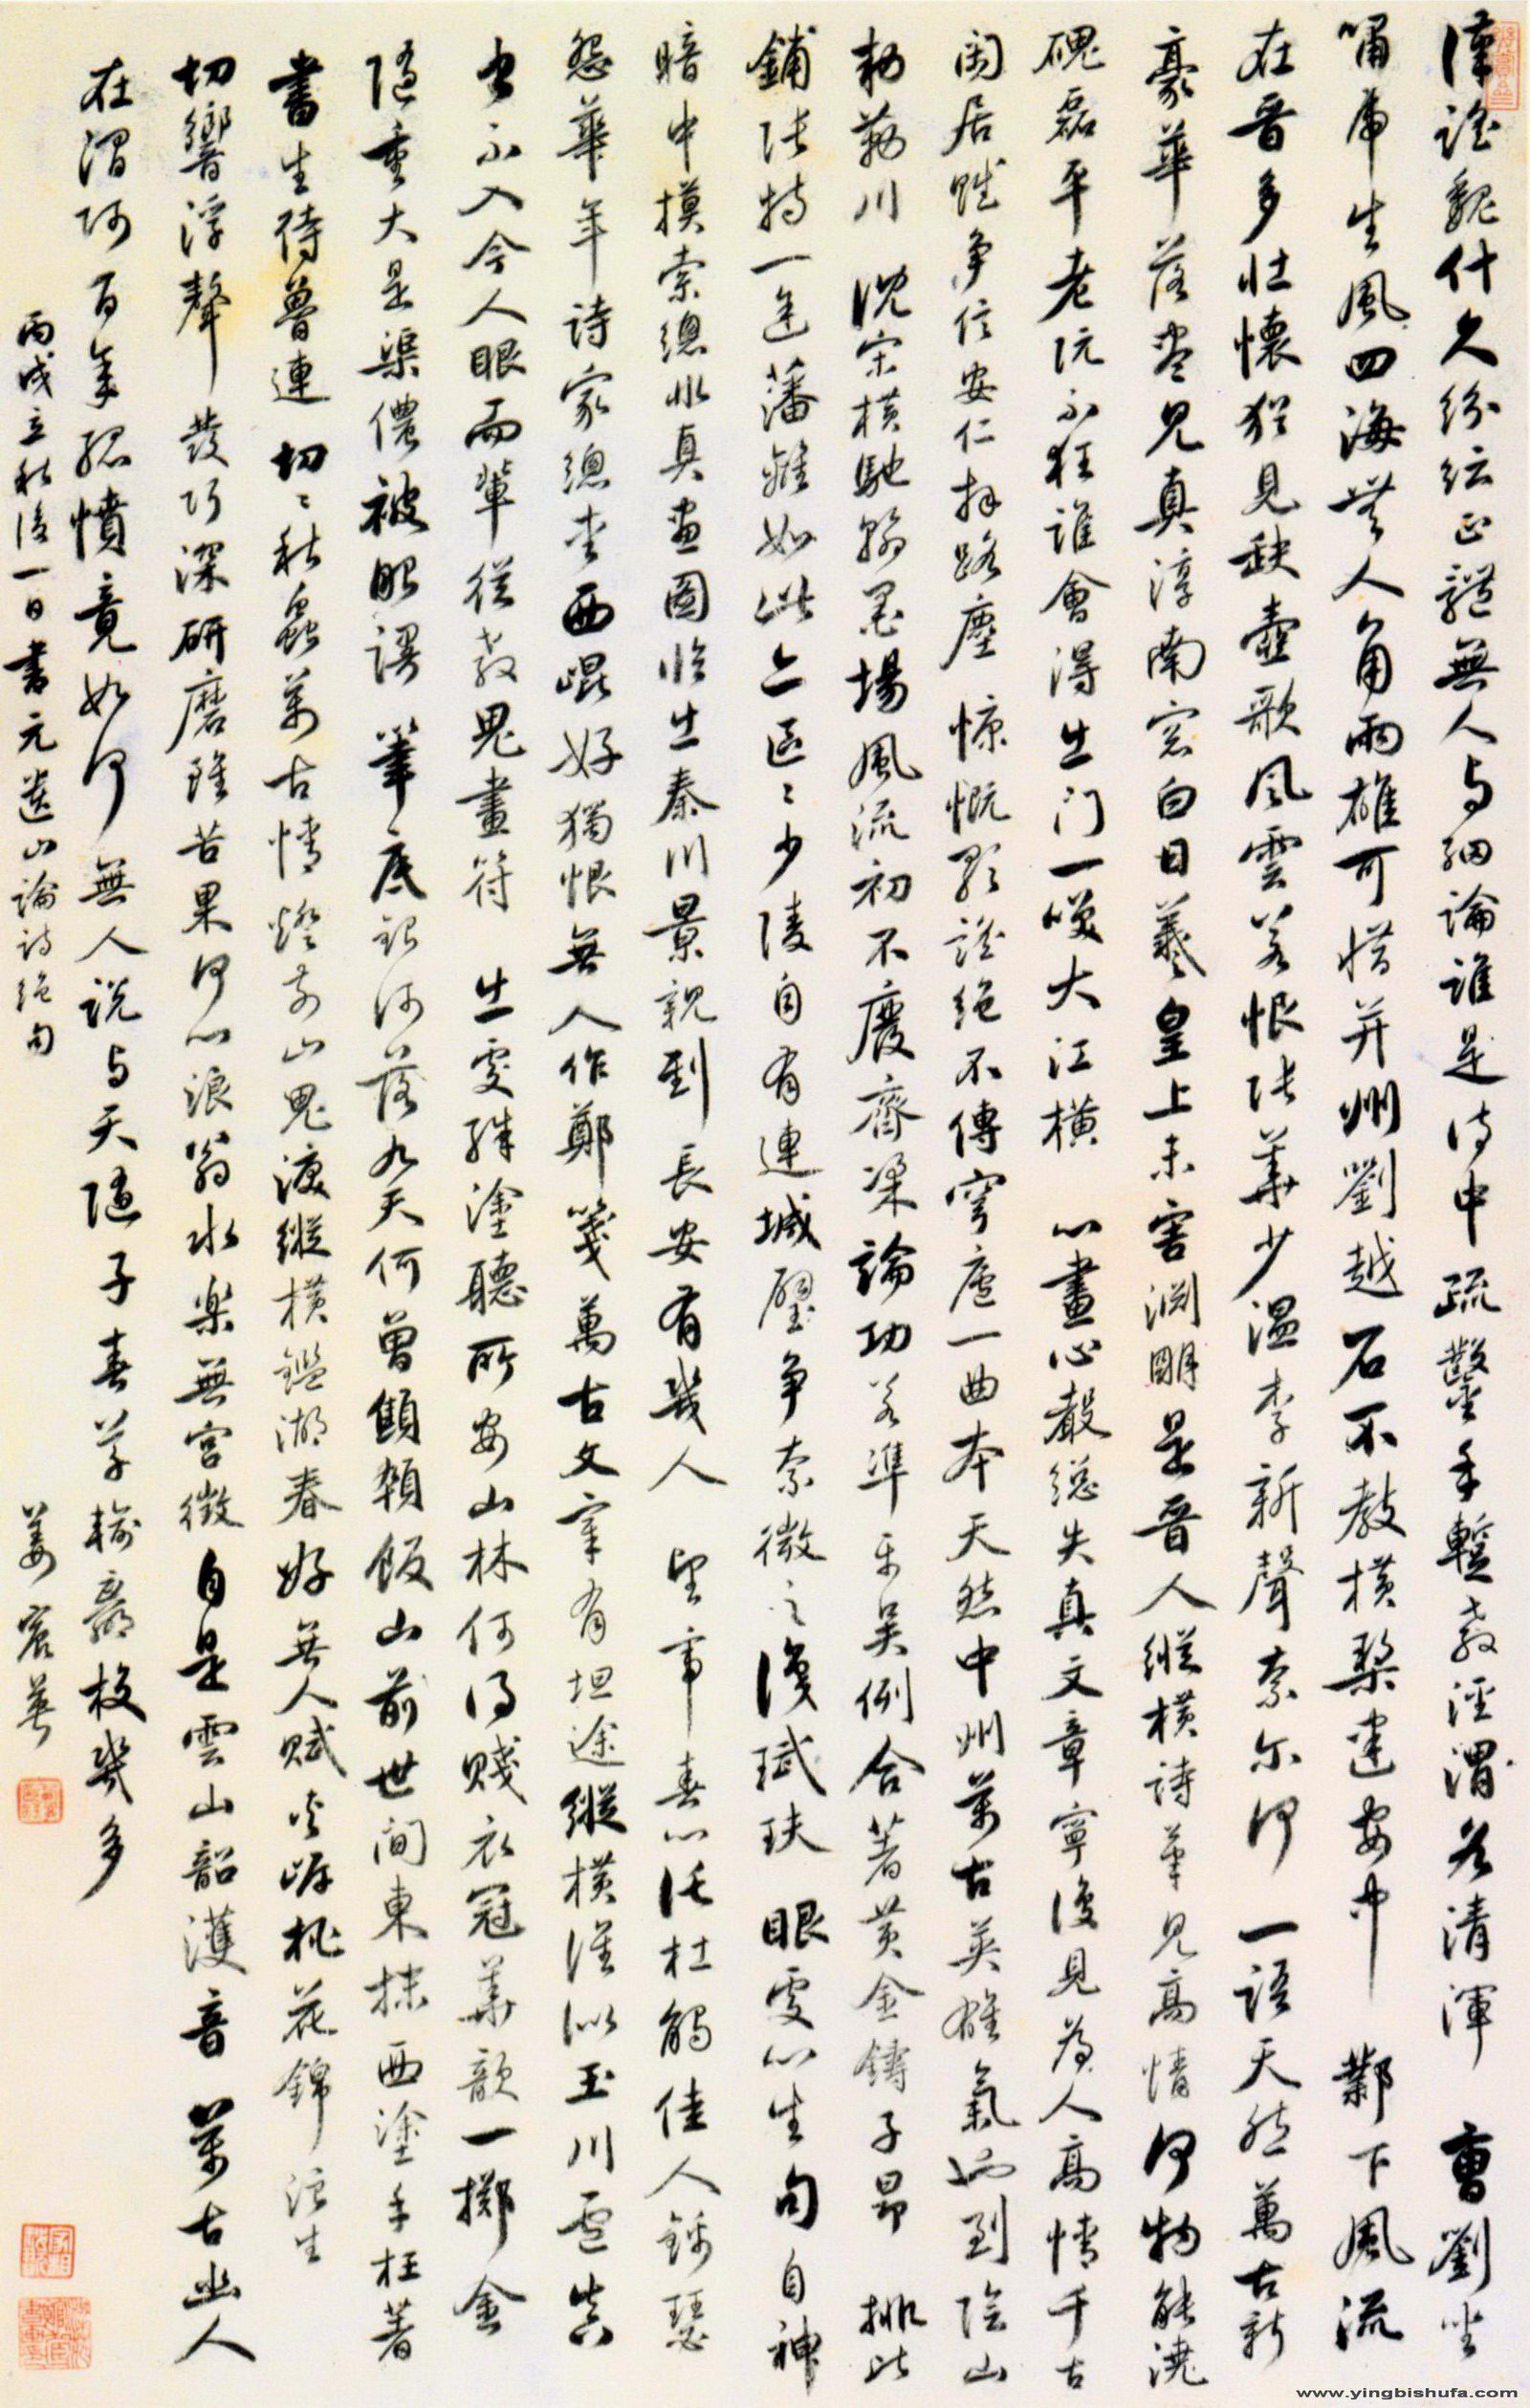 漢謠魏什久紛紜正體無人与細論誰是诗中疏鑿手暫教涇渭各清渾 曹劉坐
嘯虎生風四海無人角兩雄可惜并州劉越石不教橫槊建安中 鄴下風流
在晋多壮懷猶見缺壺歌風雲若恨张華少温李新聲奈尔何 一語天然萬古新
豪華落盡見真淳南窓白日羲皇上未害淵明是晋人 縱橫詩筆見高情何物能澆
磈磊平老阮不狂誰會得出门一嘆大江橫 心畫心聲総失真文章寧復見為人高情千古
闲居赋争信安仁拜路塵 慷慨歌謠絶不傳穹廬一曲本天然中州萬古英雄氣也到陰山
勅勒川 沈宋橫馳翰墨場風流初不廢齊梁論功若準平吴例合著黄金鑄子昂 排比
鋪张特一途藩籬如此亦區〻少陵自有連城璧争奈微之識珷玞 眼處心生句自神
暗中摸索總非真畫圖临出秦川景親到長安有幾人 望帝春心托杜鵑佳人錦瑟
怨華年詩家總爱西崐好獨恨無人作鄭箋 萬古文章有坦途縱橫誰似玉川盧真
書不入今人眼兒輩從教鬼畫符 出處殊塗聽所安山林何得賤衣冠華歆一擲金
隨重大是渠儂被眼謾 筆底銀河落九天何曾顦顇飯山前世間東抹西塗手枉著
書生待魯連 切〻秋蟲萬古情燈前山鬼淚縱橫鑑湖春好無人賦夾岸桃花錦浪生
切響浮聲發巧深研磨雖苦果何心浪翁水樂無宫徵自是雲山韶濩音 萬古幽人
在澗阿百年孤憤竟如何無人説与天隨子春草輸贏校幾多
丙戌立秋後一日書元遺山論詩絶句
姜宸英
www.yingbishufa.com